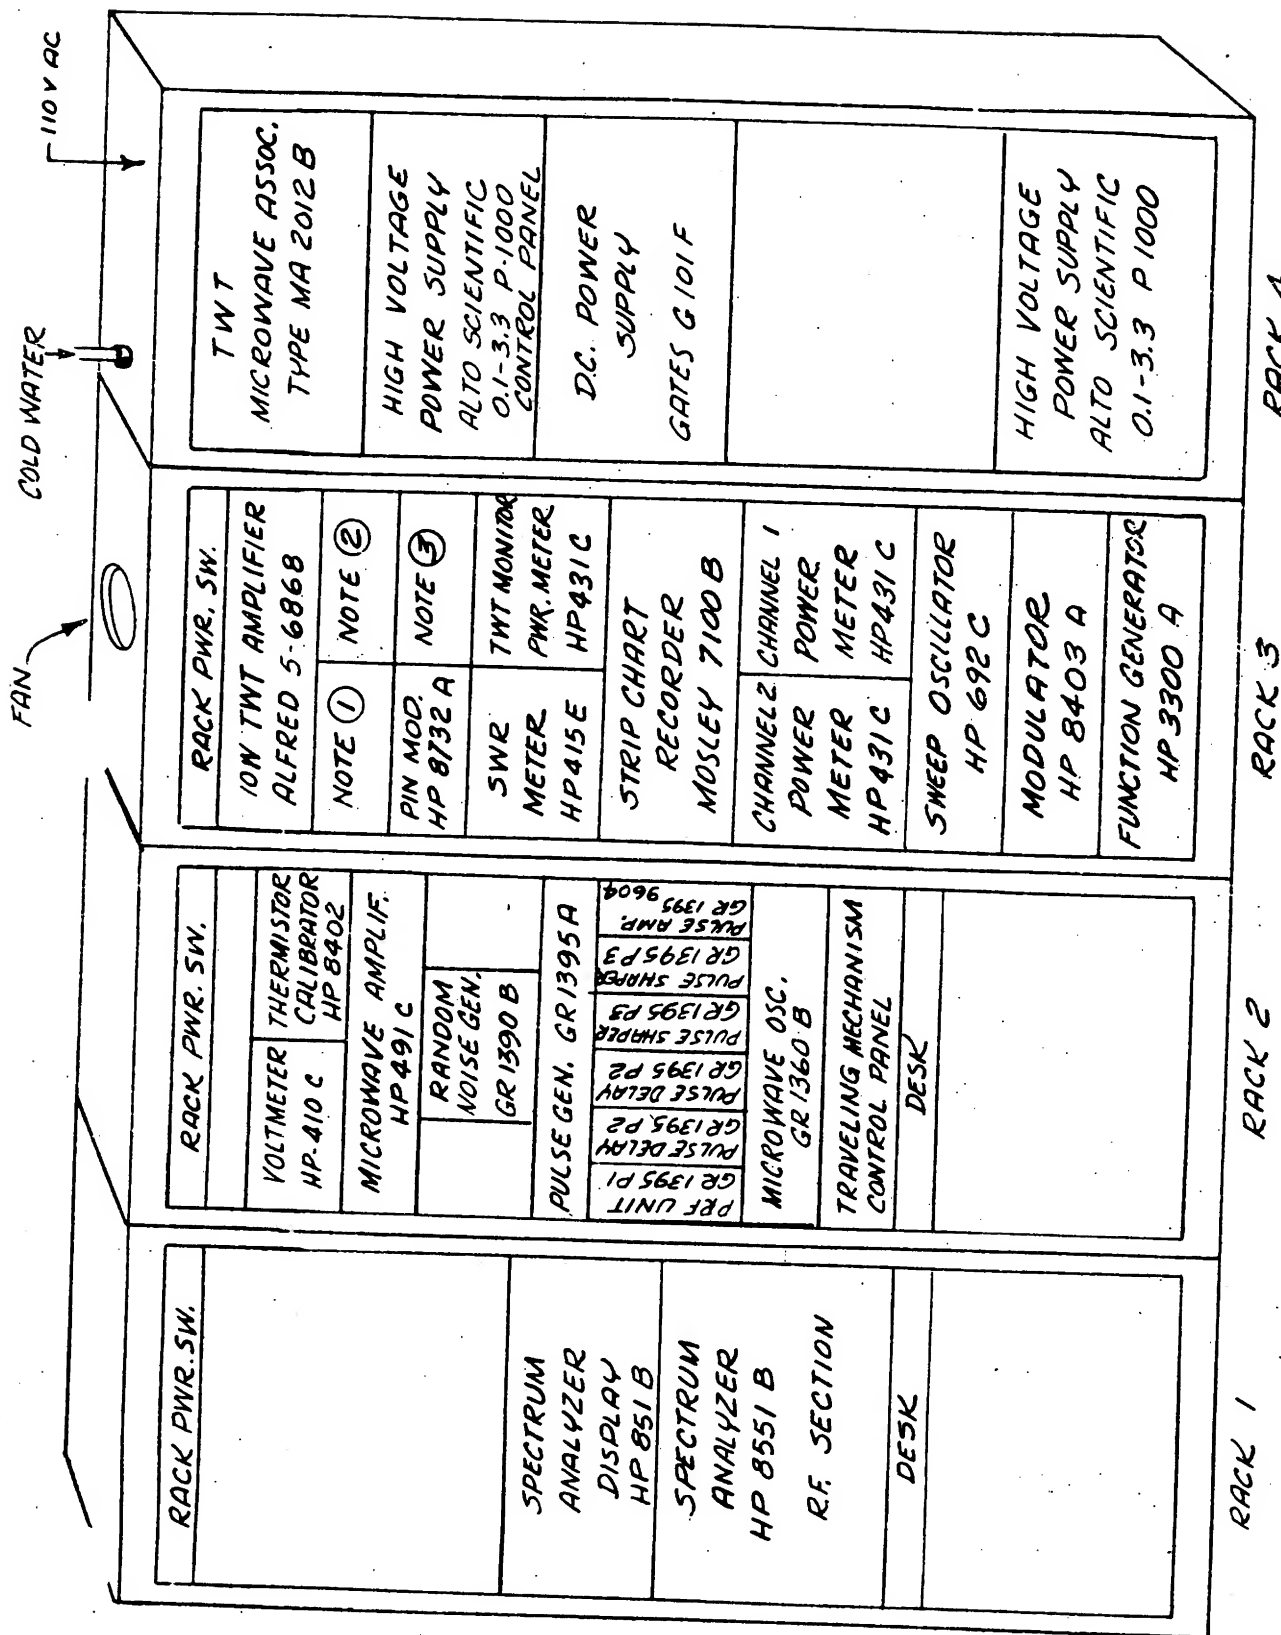 FAN
COLD WATER
110 V AC
RACK PWR. SW.
SPECTRUM
ANALYZER
DISPLAY
HP 851 B
SPECTRUM
ANALYZER
HP 8551 B
R.F. SECTION
DESK
RACK 1
RACK PWR. SW.
VOLTMETER
HP-410 C
THERMISTOR
CALIBRATOR
HP 8402
MICROWAVE AMPLIF.
HP 491 C
RANDOM
NOISE GEN.
GR 1390 B
PULSE GEN. GR 1395 A
PRF UNIT
GR 1395 P1
PULSE DELAY
GR 1395 P2
PULSE DELAY
GR 1395 P2
PULSE SHAPER
GR 1395 P3
PULSE SHAPER
GR 1395 P3
PULSE AMP.
GR 1395
9604
MICROWAVE OSC.
GR 1360 B
TRAVELING MECHANISM
CONTROL PANEL
DESK
RACK 2
RACK PWR. SW.
10W TWT AMPLIFIER
ALFRED 5-6868
NOTE ①
NOTE ②
PIN MOD.
HP 8732 A
NOTE ③
SWR
METER
HP 415 E
TWT MONITOR
PWR. METER
HP 431 C
STRIP CHART
RECORDER
MOSLEY 7100 B
CHANNEL 2
POWER
METER
HP 431 C
CHANNEL 1
POWER
METER
HP 431 C
SWEEP OSCILLATOR
HP 692 C
MODULATOR
HP 8403 A
FUNCTION GENERATOR
HP 3300 A
RACK 3
TWT
MICROWAVE ASSOC.
TYPE MA 2012 B
HIGH VOLTAGE
POWER SUPPLY
ALTO SCIENTIFIC
0.1-3.3 P-1000
CONTROL PANEL
D.C. POWER
SUPPLY
GATES G 101 F
HIGH VOLTAGE
POWER SUPPLY
ALTO SCIENTIFIC
0.1-3.3 P 1000
RACK 4